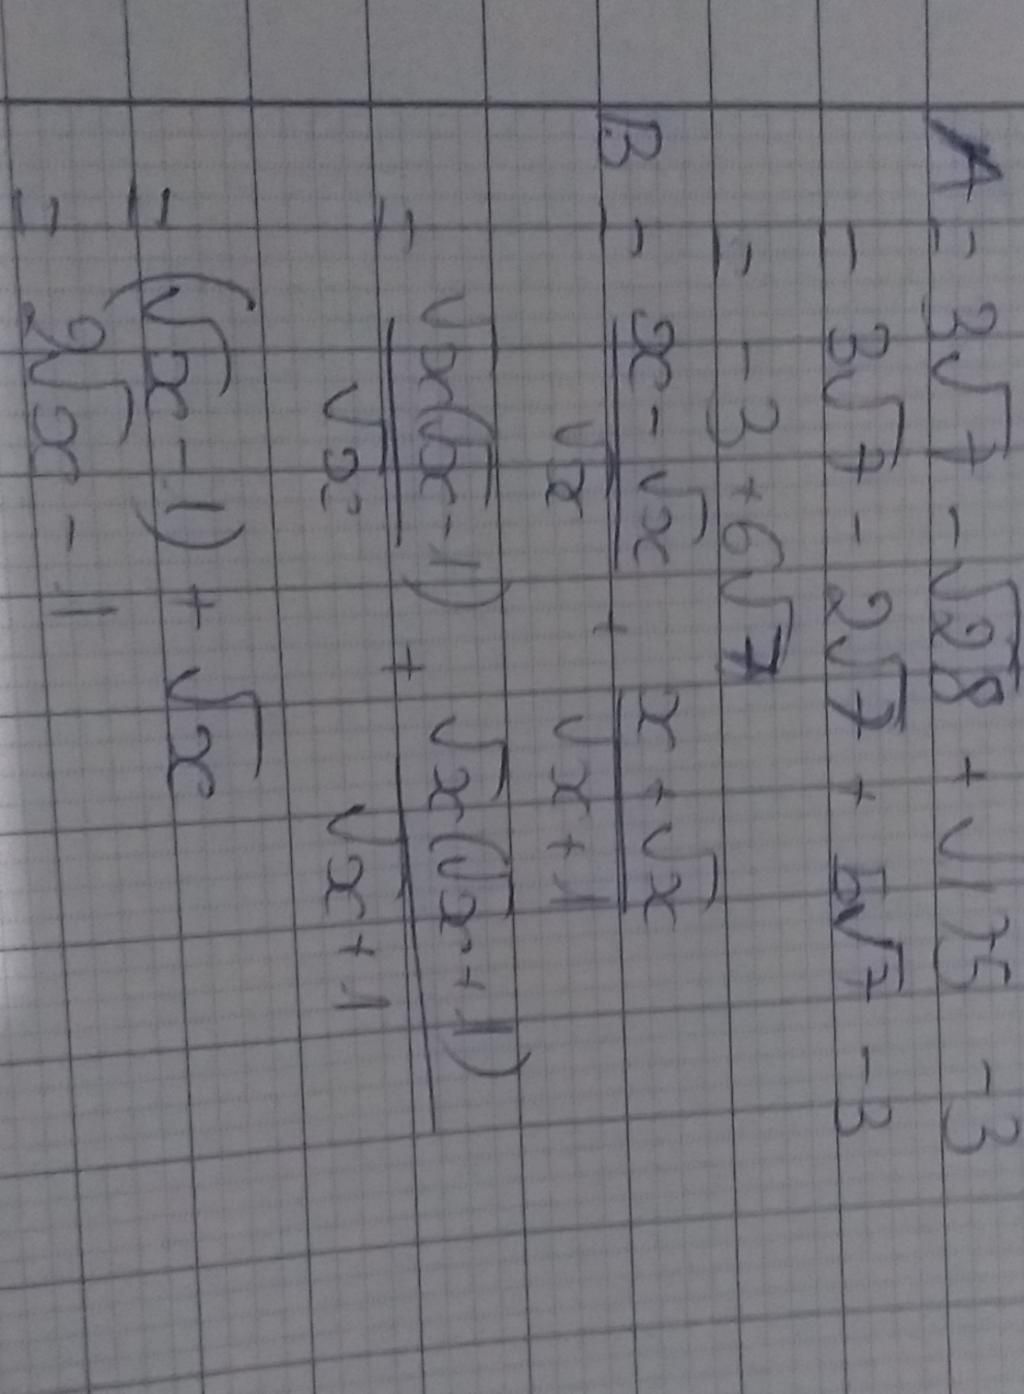 A = 3√7 - √28 + √175 - 3
= 3√7 - 2√7 + 5√7 - 3
= -3 + 6√7
B = (x - √x)/√x + (x + √x)/(√x + 1)
= √x(√x - 1)/√x + √x(√x + 1)/(√x + 1)
= (√x - 1) + √x
= 2√x - 1